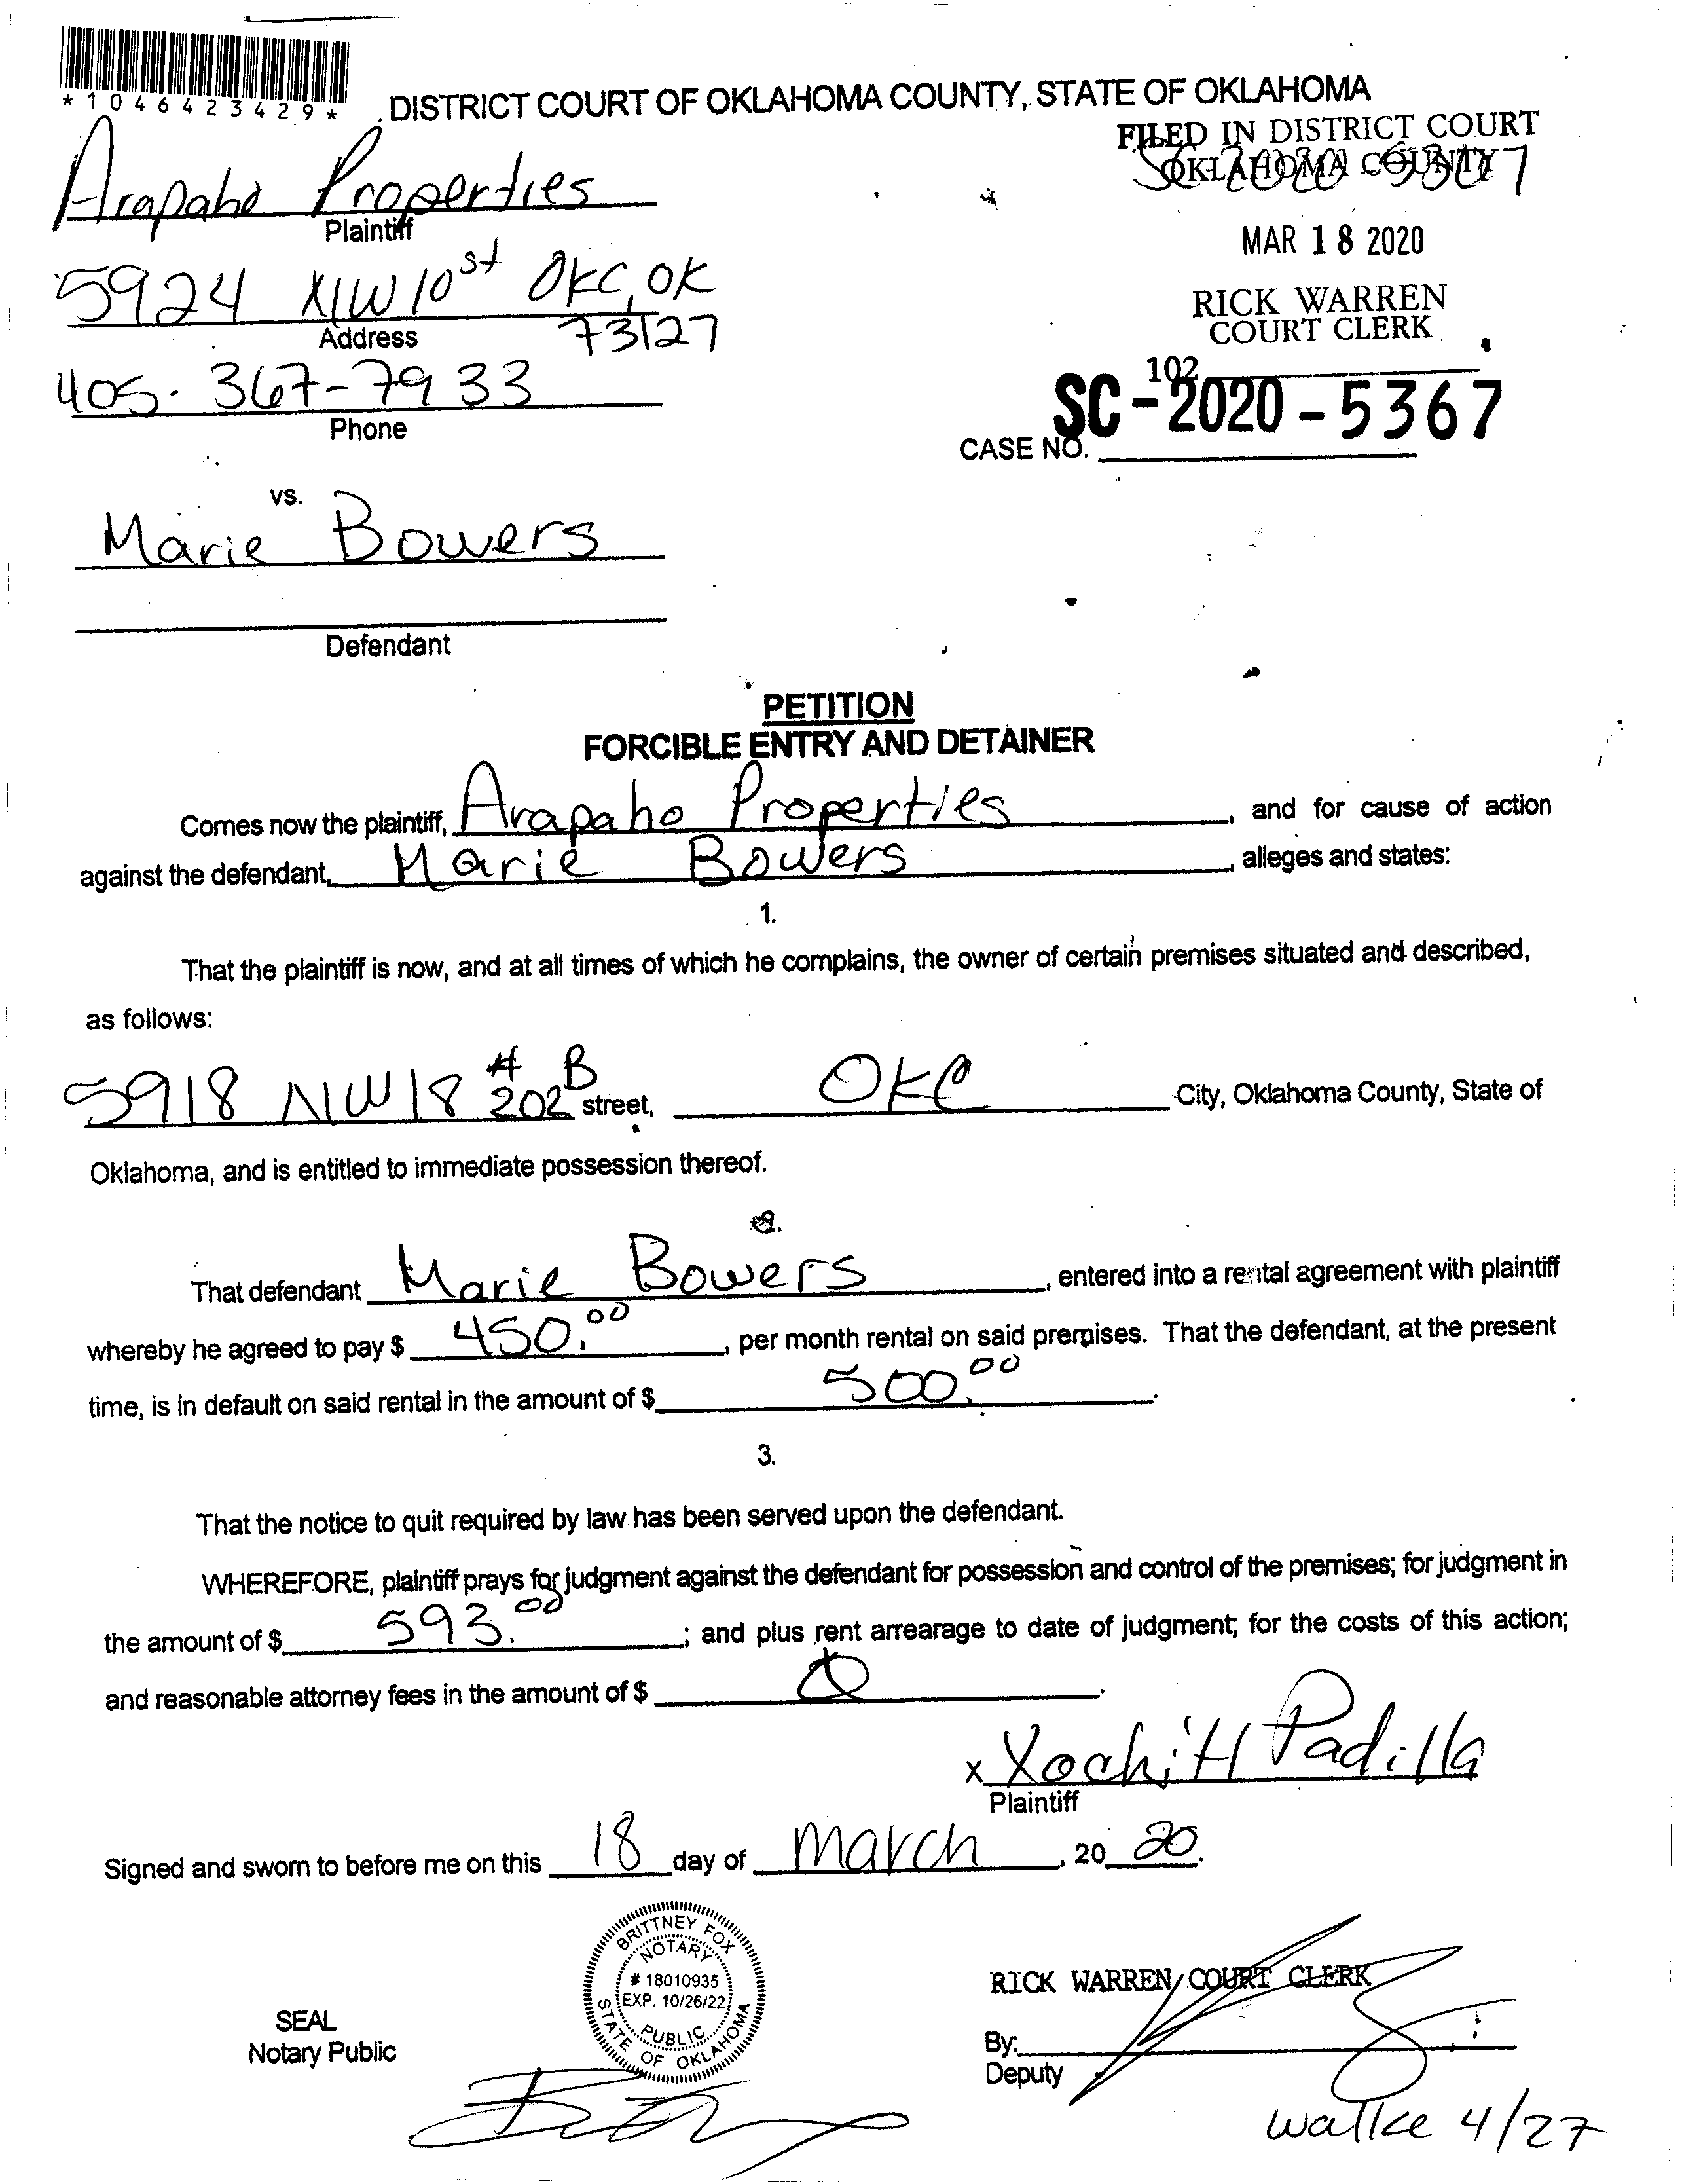 *1046423429*
DISTRICT COURT OF OKLAHOMA COUNTY, STATE OF OKLAHOMA
FILED IN DISTRICT COURT
OKLAHOMA COUNTY
Arapaho Properties
Plaintiff
MAR 18 2020
5924 NW 10st OKC, OK
73127
Address
RICK WARREN
COURT CLERK
405-367-7933
Phone
102
CASE NO. SC-2020-5367
vs.
Marie Bowers
Defendant
PETITION
FORCIBLE ENTRY AND DETAINER
Comes now the plaintiff, Arapaho Properties, and for cause of action
against the defendant, Marie Bowers, alleges and states:
1.
That the plaintiff is now, and at all times of which he complains, the owner of certain premises situated and described,
as follows:
5918 NW 18 # 202 B street, OKC City, Oklahoma County, State of
Oklahoma, and is entitled to immediate possession thereof.
2.
That defendant Marie Bowers, entered into a rental agreement with plaintiff
whereby he agreed to pay $ 450.00, per month rental on said premises. That the defendant, at the present
time, is in default on said rental in the amount of $ 500.00.
3.
That the notice to quit required by law has been served upon the defendant.
WHEREFORE, plaintiff prays for judgment against the defendant for possession and control of the premises; for judgment in
the amount of $ 593.00; and plus rent arrearage to date of judgment; for the costs of this action;
and reasonable attorney fees in the amount of $
x Xochitl Padilla
Plaintiff
Signed and sworn to before me on this 18 day of March, 20 20.
BRITTNEY FOX
NOTARY
# 18010935
EXP. 10/26/22
PUBLIC
STATE OF OKLAHOMA
SEAL
Notary Public
RICK WARREN, COURT CLERK
By:
Deputy
walke 4/27